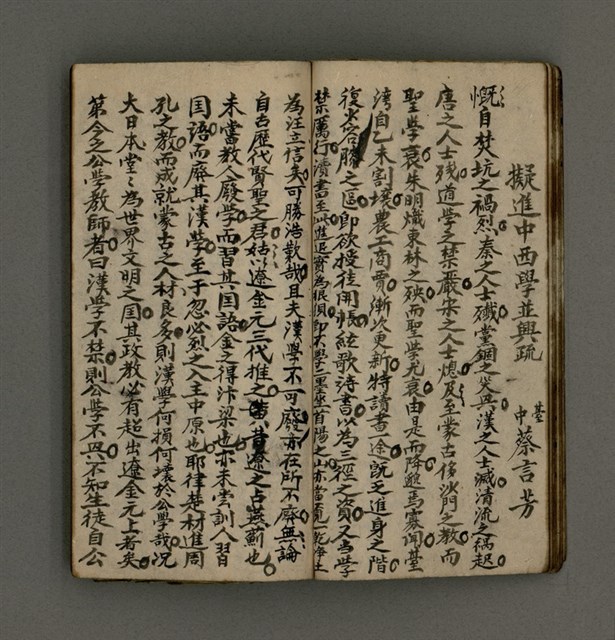 擬進中西學並興疏
臺中 蔡言芳
慨自焚坑之禍烈秦之人士殲黨錮之災興漢之人士滅清流之禍起
唐之人士殘道學之禁嚴宋之人士熄及至蒙古侈沙門之教而
聖學衰朱明熾東林之殃而聖學尤衰由是而降遞焉寡聞臺
灣自乙未割壤農工商賈漸次更新特讀書一途既乏進身之階
復少容膝之區即欲授徒開帳絃歌詩書以為三徑之資又當學
禁厲行讀書至此進退實為狼狽即大學二墨坐首陽之山亦當覓一乾淨土
為汪立信矣可勝浩歎哉且夫漢學不可廢亦在所不廢無論
自古歷代賢聖之君姑以遼金元三代推之昔遼之占燕薊也
未嘗教人廢學而習其国語金之得汴梁也亦未尝訓人習
国語而廢其漢學至于忽必烈之入主中原也耶律楚材進周
孔之教而成就蒙古之人材良多則漢學何損何壞於公學哉况
大日本堂〻為世界文明之国其政教必有超出遼金元上者矣
第今之公學教師者曰漢學不禁則公學不興不知生徒自公